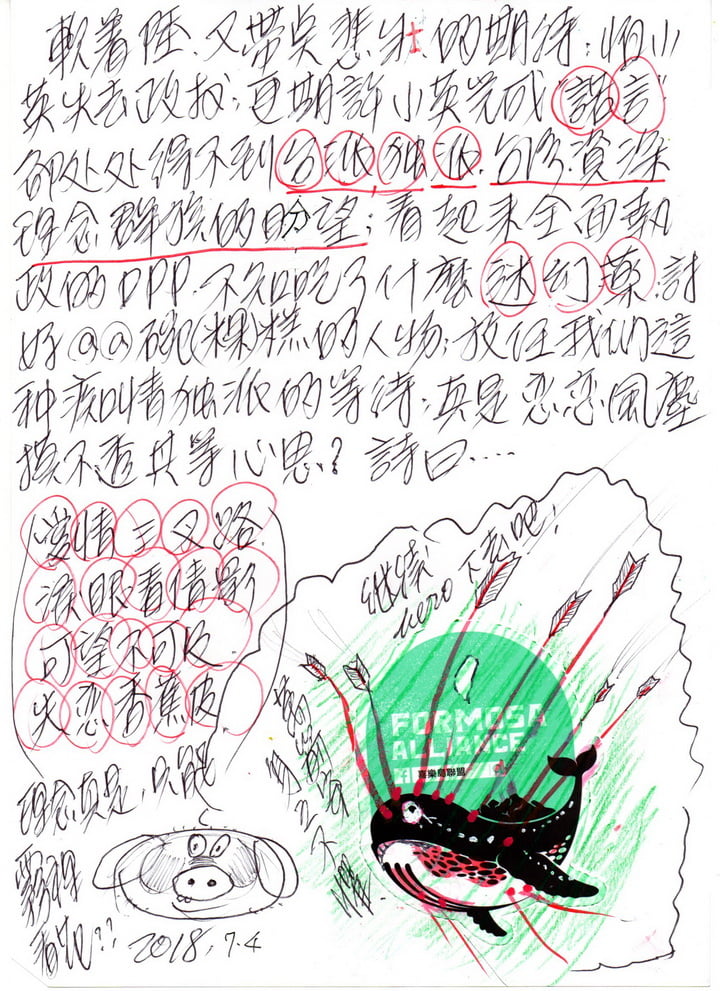 軟着陸.又帶点悲壯的期待;怕小
英失去政权;更期許小英完成諾言
卻处处得不到台派独派.台湾資深
理念群族的盼望;看起来全面執
政的DPP.不知吃了什麼迷幻藥.討
好@@碗(粿)糕的人物;放任我們這
种痴情独派的等待;真是恋恋風塵
摸不透其等心思?詩曰....
愛情三叉路.
淚眼看倩影
可望不可及.
失恋香蕉皮.
理念真是.只能
霧裡
看花??
2018.7.4
继續
zero下去吧!
FORMOSA
ALLIANCE
喜樂島聯盟